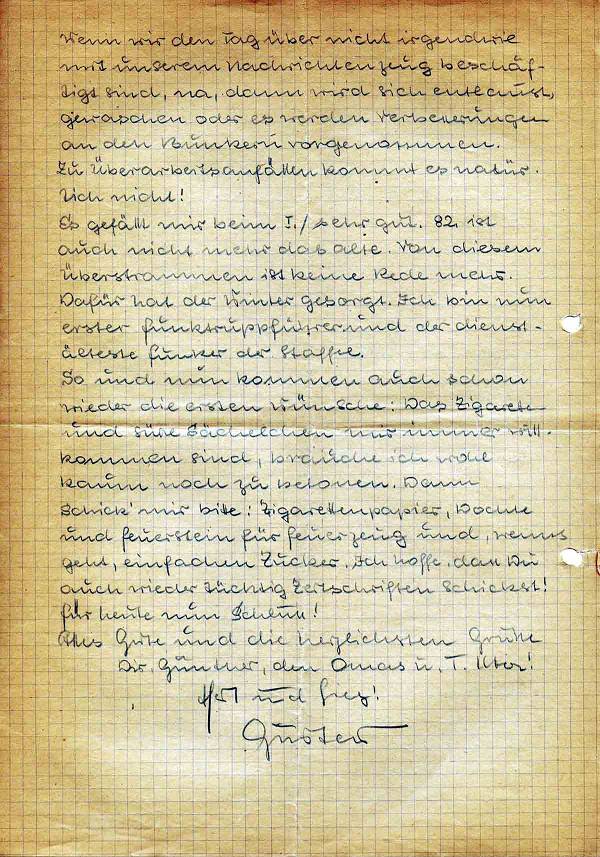 Wenn wir den Tag über nicht irgendwie
mit unserem Nachrichtenzeug beschäf-
tigt sind, na, dann wird sich entlaust,
gewaschen oder es werden Verbesserungen
an den Bunkern vorgenommen.
Zu Überarbeitsanfällen kommt es natür-
lich nicht!
Es gefällt mir beim I./ sehr gut. 82 ist
auch nicht mehr das alte. Von diesem
überstrammen ist keine Rede mehr.
Dafür hat der Winter gesorgt. Ich bin nun
erster Funktruppführer und der dienst-
älteste Funker der Staffel.
So und nun kommen auch schon
wieder die ersten Wünsche: Das Zigarette
und süße Sächelchen mir immer will-
kommen sind, brauche ich wohl
kaum noch zu betonen. Dann
schick' mir bitte: Zigarettenpapier, Dochte
und Feuerstein für Feuerzeug und, wenns
geht, einfachen Zucker. Ich hoffe, daß Du
auch wieder tüchtig Zeitschriften schickst!
Für heute nun Schluß!
Alles Gute und die herzlichsten Grüße
Dir, Günther, den Omas u. T.
und Sieg!